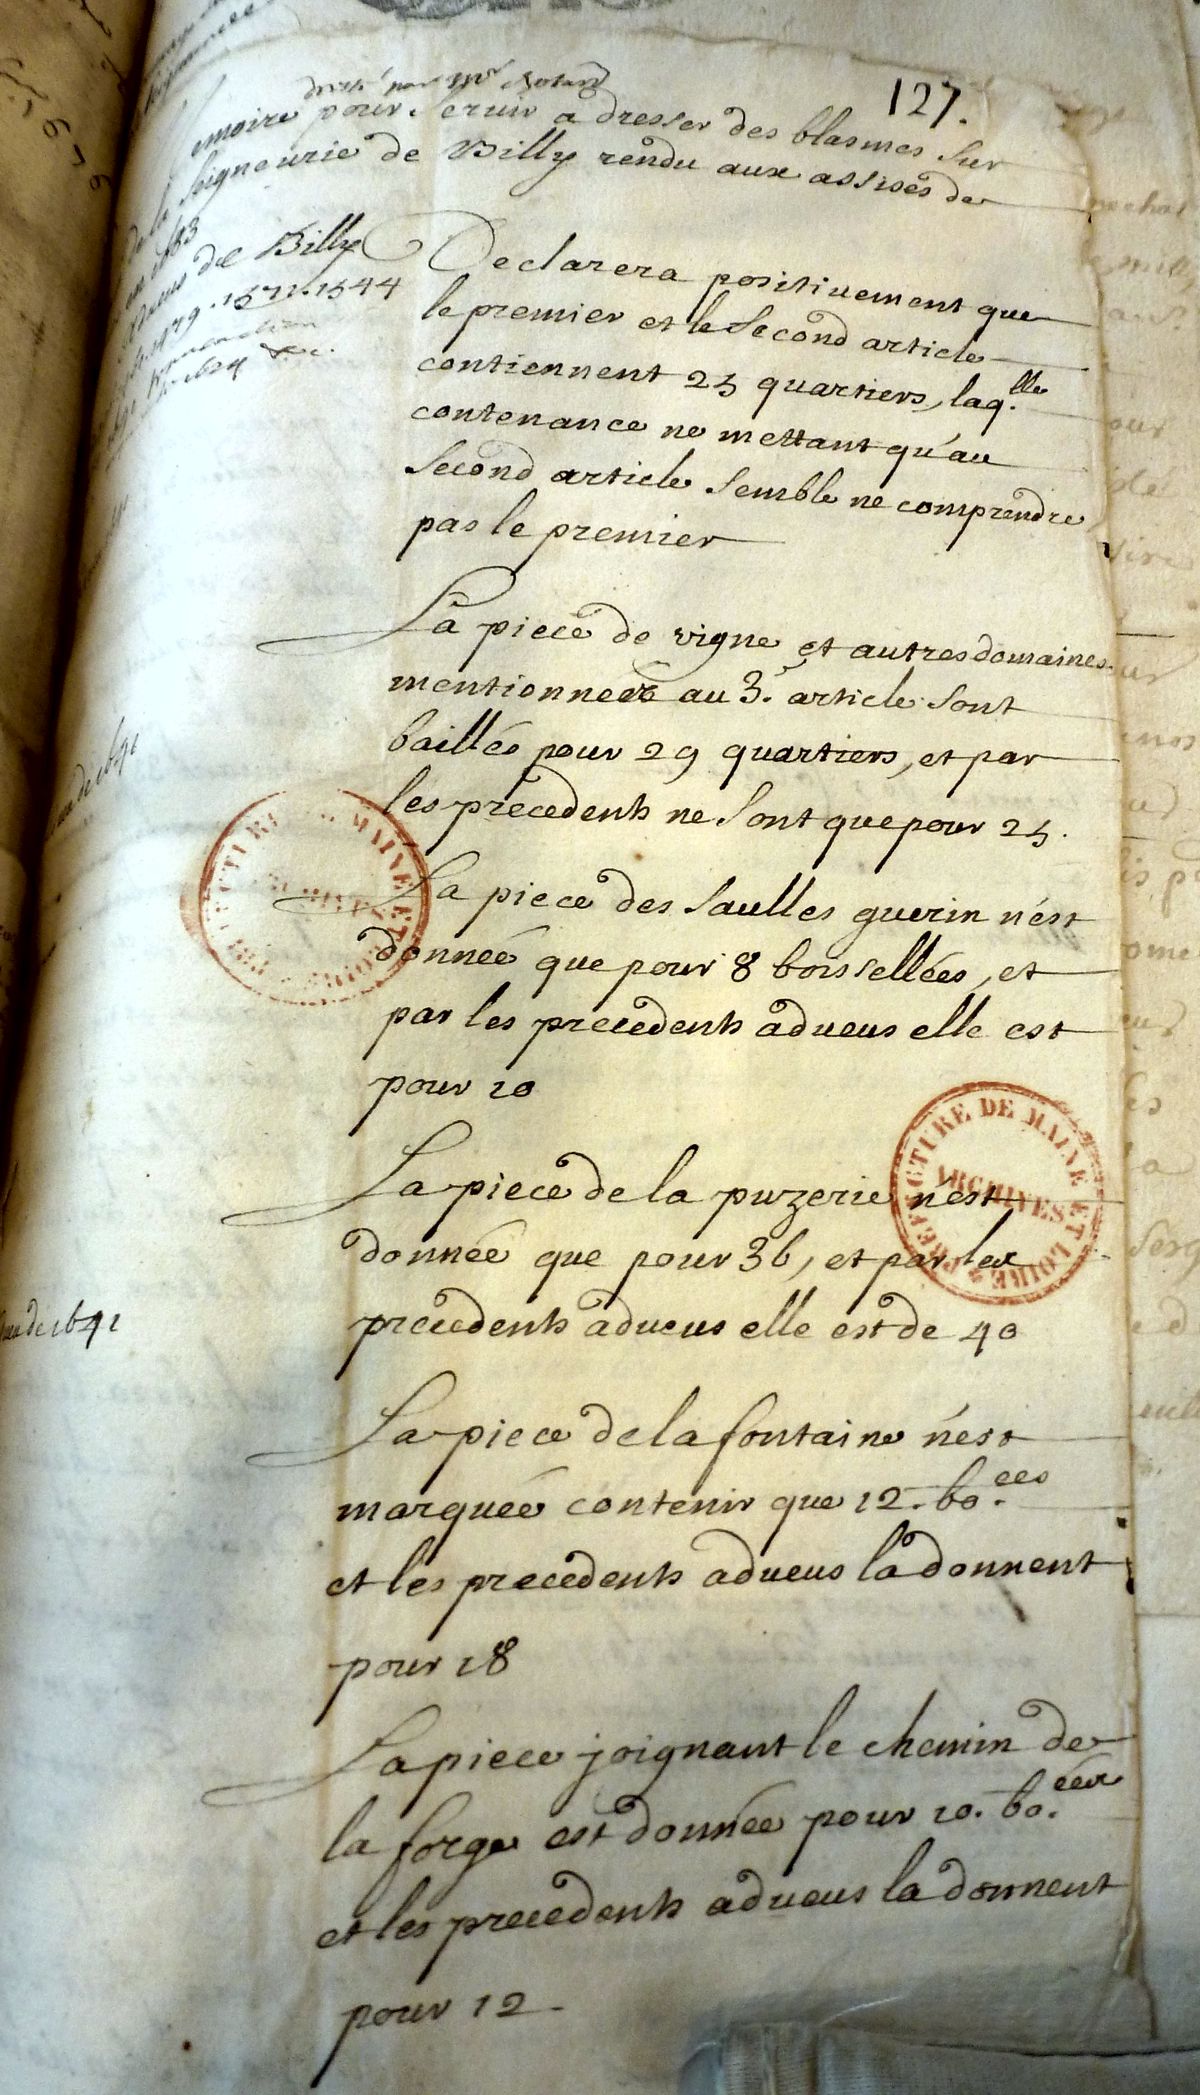 127.
dressé par Mr
emoire pour seruir a dresser des blasmes sur
seigneurie de Billy rendu aux assises de
en 1683
adueus de Billy
1479. 1571. 1544
Declarera positiuement que
le premier et le second article
contiennent 25 quartiers, laq.lle
contenance ne mettant qu'au
second article semble ne comprendre
pas le premier
La piece de vigne et autres domaines
mentionnez au 3.e article sont
baillés pour 29 quartiers, et par
les precedents ne sont que pour 25.
de 1691
La piece des saulles guerin n'est
donnée que pour 8 boissellées, et
par les precedents adueus elle est
pour 10
La piece de la puzerie n'est
donnée que pour 36, et par les
precedents adueus elle est de 40
de 1691
La piece de la fontaine n'est
marquée contenir que 12. bo.ées
et les precedents adueus la donnent
pour 18
La piece joignant le chemin de
la forge est donnée pour 10. bo.ées
et les precedents adueus la donnent
pour 12
PREFECTURE DE MAINE ET LOIRE
ARCHIVES
PREFECTURE DE MAINE ET LOIRE
ARCHIVES